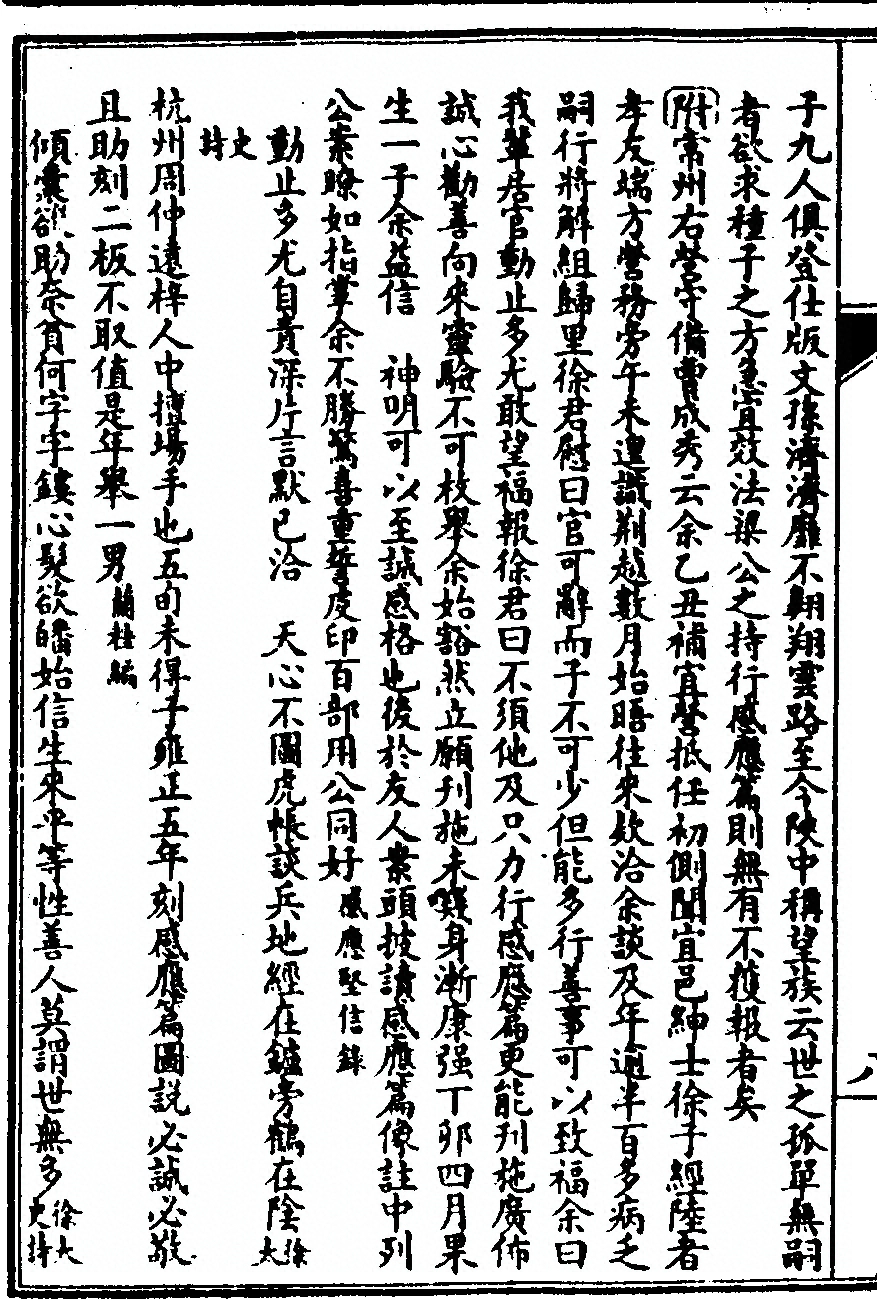 子九人俱登仕版文孫濟濟靡不翺翔雲路至今陝中稱望族云世之孤單無嗣
者欲求種子之方急宜效法梁公之持行感應篇則無有不獲報者矣
附常州右營守備曹成秀云余乙丑補宜營抵任初側聞宜邑紳士徐子經陸者
孝友端方營務旁午未遑識荆越數月始晤往來欵洽余談及年逾半百多病乏
嗣行將解組歸里徐君慰曰官可辭而子不可少但能多行善事可以致福余曰
我輩居官動止多尤敢望福報徐君曰不須他及只力行感應篇更能刊施廣佈
誠心勸善向來靈驗不可枚舉余始豁然立願刊施未幾身漸康强丁卯四月果
生一子余益信　神明可以至誠感格也後於友人案頭披讀感應篇像註中列
公案瞭如指掌余不勝驚喜重誓虔印百部用公同好感應堅信錄
動止多尤自責深片言默已洽　天心不圖虎帳談兵地經在鑪旁鶴在陰徐大
史詩
杭州周仲遠梓人中擅場手也五旬未得子雍正五年刻感應篇圖説必誠必敬
且助刻二板不取值是年舉一男蘭桂編
傾囊欲助奈貧何字字鏤心髮欲皤始信生來平等性善人莫謂世無多徐大史詩
八